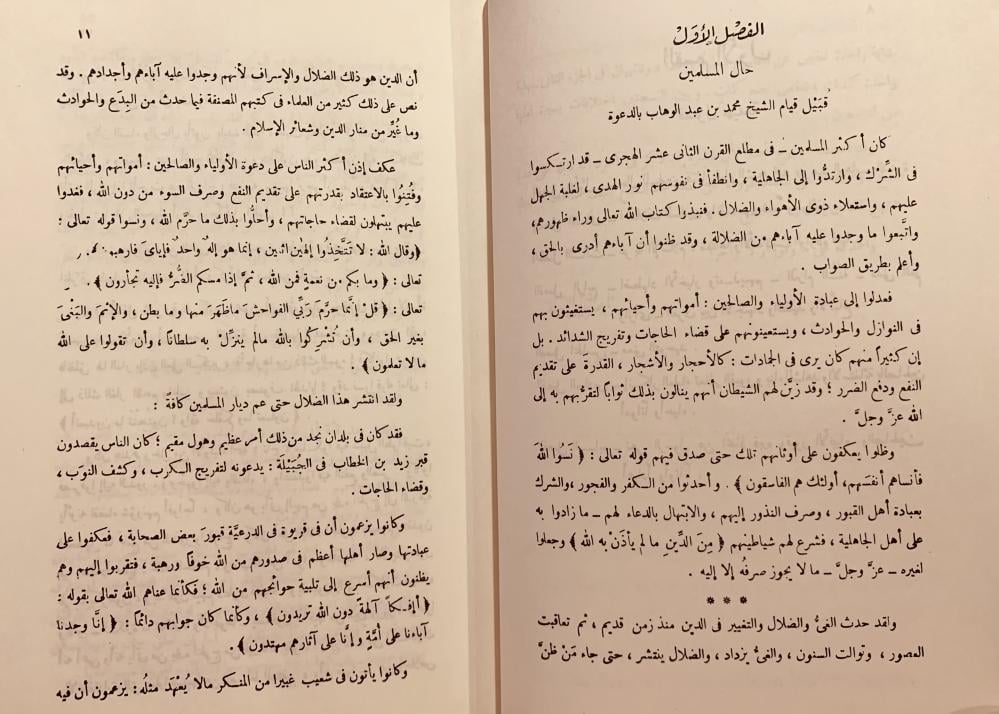 الفصل الأول
حال المسلمين
قُبَيْل قيام الشيخ محمد بن عبد الوهاب بالدعوة
كان أكثر المسلمين ــ فى مطلع القرن الثانى عشر الهجرى ــ قد ارتكسوا
فى الشِّرْك ، وارتدُّوا إلى الجاهلية ، وانطفأ فى نفوسهم نور الهدى ، لغلبة الجهل
عليهم ، واستعلاء ذوى الأهواء والضلال . فنبذوا كتاب الله تعالى وراء ظهورهم،
واتَّبعوا ما وجدوا عليه آباءهم من الضلالة ، وقد ظنوا أن آباءهم أدرى بالحق ،
وأعلم بطريق الصواب .
فعدلوا إلى عبادة الأولياء والصالحين : أمواتهم وأحيائهم ، يستغيثون بهم
فى النوازل والحوادث ، ويستعينونهم على قضاء الحاجات وتفريج الشدائد . بل
إن كثيراً منهم كان يرى فى الجمادات : كالأحجار والأشجار ، القدرةَ على تقديم
النفع ودفع الضرر ؛ وقد زيَّن لهم الشيطان أنهم ينالون بذلك ثواباً لتقرُّبهم به إلى
الله عزَّ وجلَّ .
وظلوا يعكفون على أوثانهم تلك حتى صدق فيهم قوله تعالى : ﴿ نَسُوا اللهَ
فأنساهم أنفسَهم، أولئك هم الفاسقون ﴾ . وأحدثوا من الكفر والفجور ،والشرك
بعبادة أهل القبور ، وصرف النذور إليهم ، والابتهال بالدعاء لهم ــ ما زادوا به
على أهل الجاهلية ، فشرع لهم شياطينهم ﴿ مِنَ الدِّينِ ما لم يأذَنْ به الله ﴾ وجعلوا
لغيره ــ عزَّ وجلَّ ــ ما لا يجوز صرفُه إلا إليه .
* * *
ولقد حدث الغىُّ والضلال والتغيير فى الدين منذ زمن قديم ، ثم تعاقبت
العصور ، وتوالت السنون ، والغىُّ يزداد ، والضلال ينتشر ، حتى جاء مَنْ ظنَّ
١١
أن الدين هو ذلك الضلال والإسراف لأنهم وجدوا عليه آباءهم وأجدادهم . وقد
نص على ذلك كثير من العلماء فى كتبهم المصنفة فيما حدث من البِدَع والحوادث
وما غُيِّر من منار الدين وشعائر الإسلام .
عكف إذن أكثر الناس على دعوة الأولياء والصالحين : أمواتهم وأحيائهم
وفُتِنُوا بالاعتقاد بقدرتهم على تقديم النفع وصرف السوء من دون الله ، فغدوا
عليهم يبتهلون لقضاء حاجاتهم ، وأحلُّوا بذلك ما حرَّم الله ، ونسوا قوله تعالى :
﴿وقال الله : لا تَتَّخِذُوا إلهين اثنين ، إنما هو إلهٌ واحدٌ فإياىَ فارهبون
تعالى : ﴿ وما بكم من نعمةٍ فمن الله ، ثمَّ إذا مسكم الضُّرُّ فإليه تجأرون ﴾ .
تعالى : ﴿ قلْ إنَّما حرَّمَ رَبِّىَ الفواحشَ ماظَهَرَ منها وما بطن ، والإثمَ والبَغْىَ
بغير الحق ، وأن تُشْرِكُوا بالله مالم ينزِّلْ به سلطاناً ، وأن تقولوا على الله
ما لا تعلمون ﴾ .
ولقد انتشر هذا الضلال حتى عم ديار المسلمين كافةً :
فقد كان فى بلدان نجد من ذلك أمر عظيم وهول مقيم ؛ كان الناس يقصدون
قبر زيد بن الخطاب فى الجُبَيْلَة : يدعونه لتفريج الكرب ، وكشف النوَب ،
وقضاء الحاجات .
وكانوا يزعمون أن فى قريوة فى الدرعيَّة قبورَ بعض الصحابة ، فعكفوا على
عبادتها وصار أهلها أعظم فى صدورهم من الله خوفاً ورهبة ، فتقربوا إليهم وهم
يظنون أنهم أسرع إلى تلبية حوائجهم من الله ؛ فكأنما عناهم الله تعالى بقوله :
﴿ أإفكاً آلهةً دون الله تريدون ﴾ ، وكأنما كان جوابهم دائماً : ﴿ إنَّا وجدنا
آباءنا على أُمَّةٍ وإنَّا على آثارهم مهتدون ﴾ .
وكانوا يأتون فى شعيب غبيرا من المنكر مالا يُعْهَد مثلُه : يزعمون أن فيه